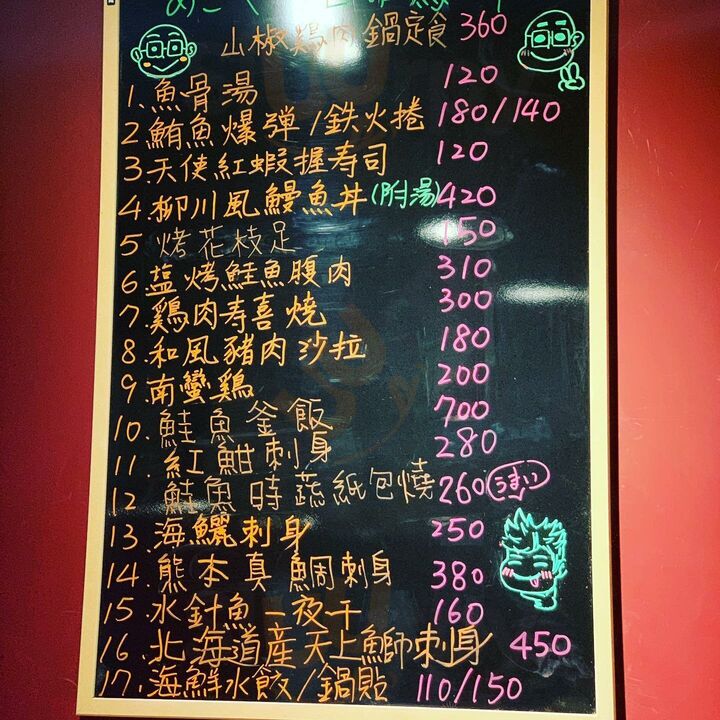 山椒鶏肉鍋定食 360
1.魚骨湯 120
2.鮪魚爆彈/鉄火捲 180/140
3.天使紅蝦握寿司 120
4.柳川風鰻魚丼(附湯) 420
5 烤花枝足 150
6.塩烤鮭魚腹肉 310
7.鶏肉寿喜燒 300
8.和風豬肉沙拉 180
9.南蠻鶏 200
10.鮭魚釜飯 700
11.紅魽刺身 280
12 鮭魚時蔬紙包燒 260 うまい
13.海鱺刺身 250
14.熊本真鯛刺身 380
15.水針魚一夜干 160
16.北海道産天上鰤刺身 450
17.海鮮水餃/鍋貼 110/150